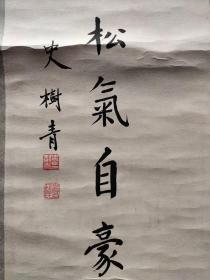 松氣自豪
史樹青